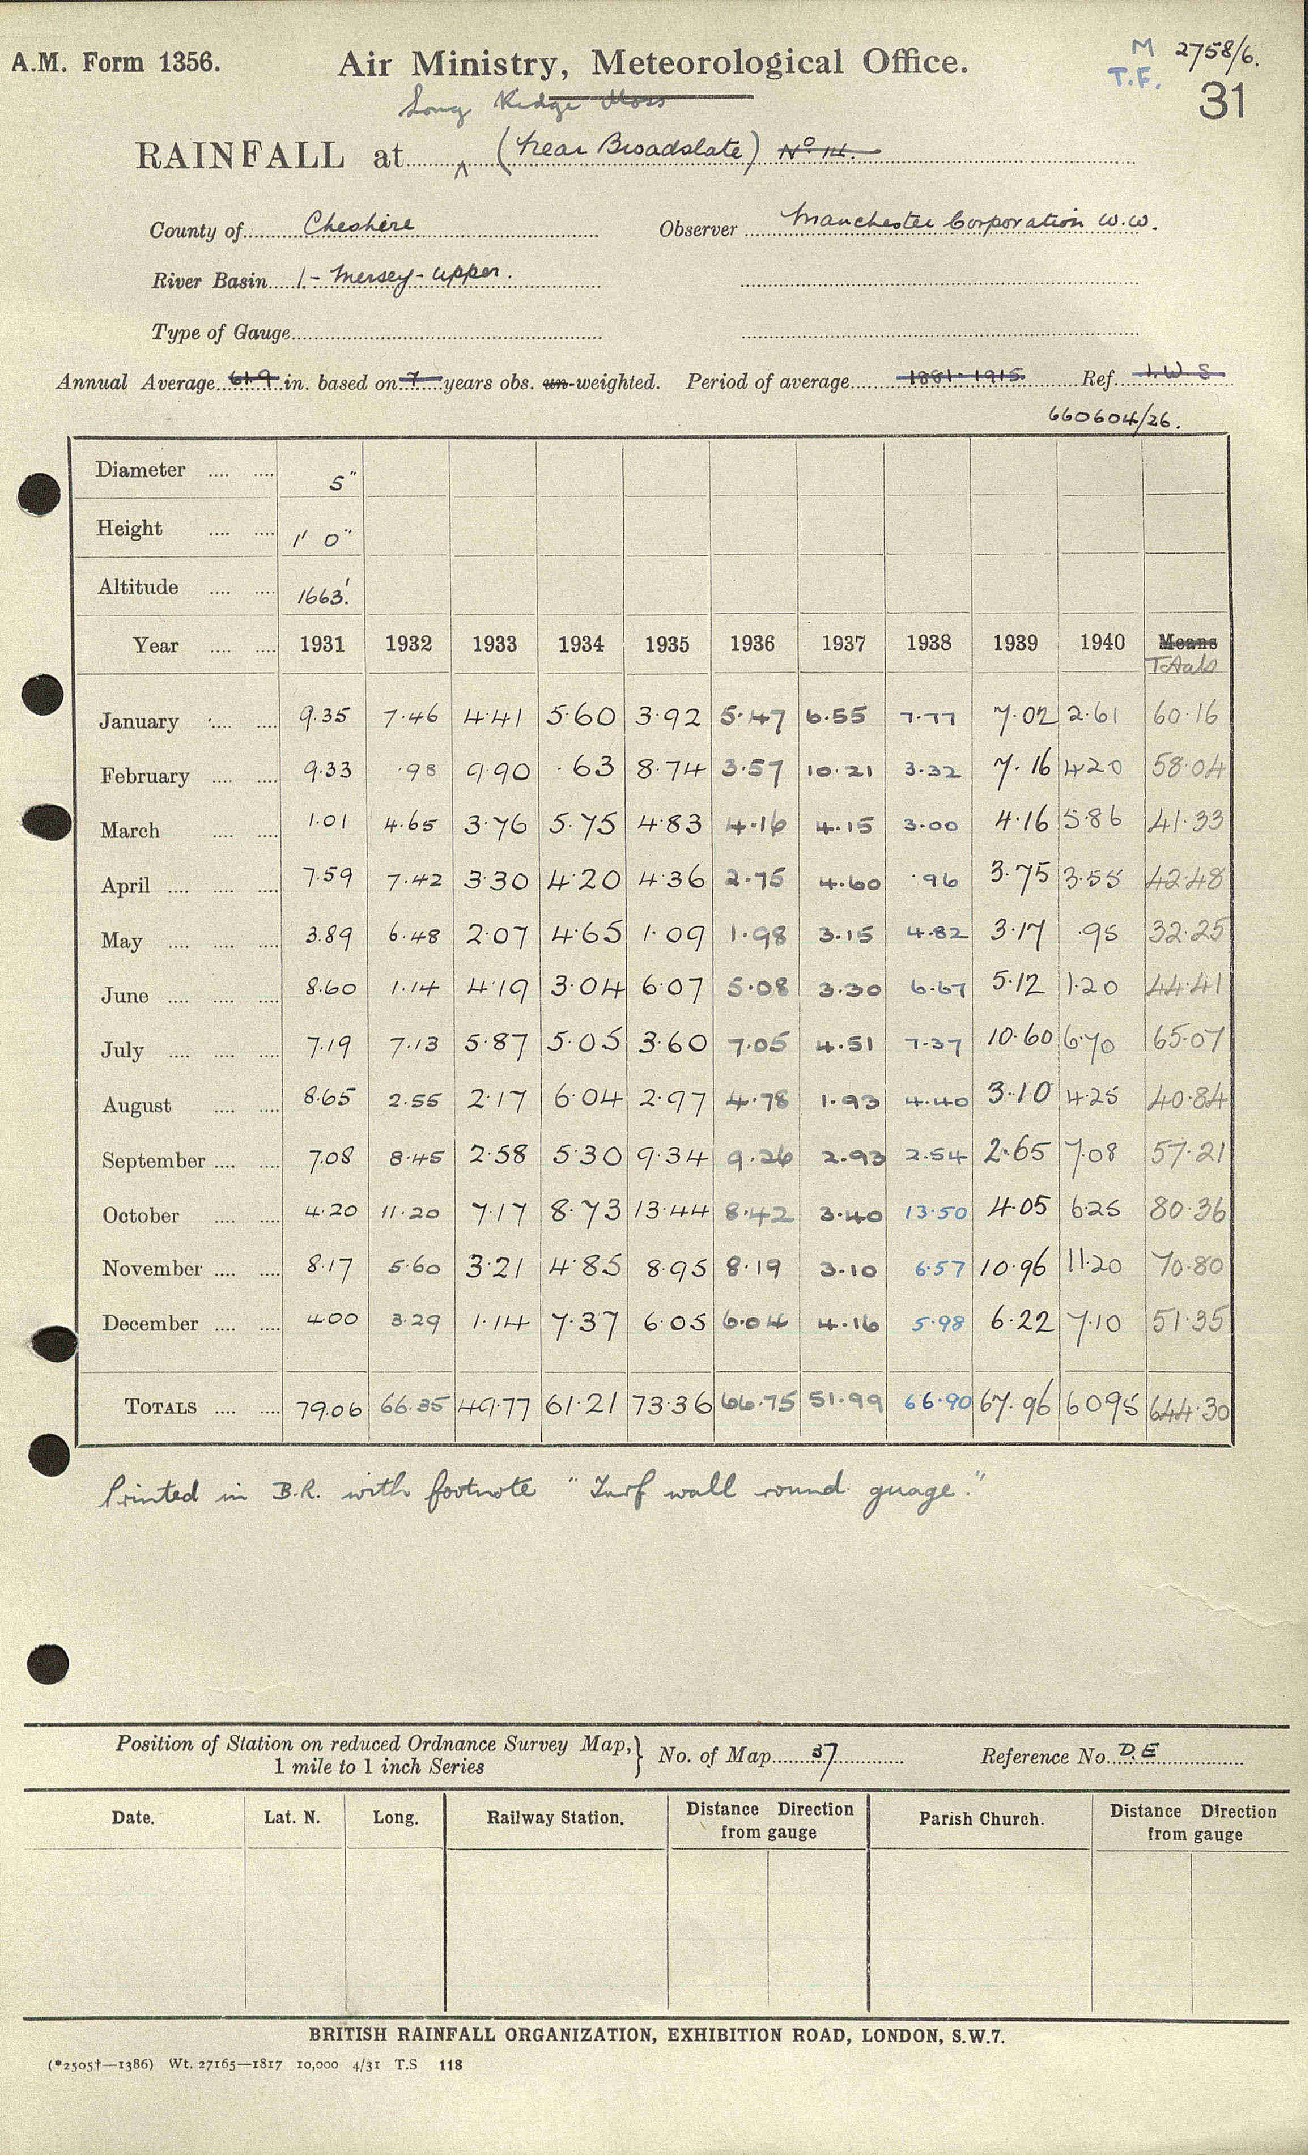 A.M. Form 1356.
Air Ministry, Meteorological Office.
M 2758/6.
T.F.
31
Long Ridge Moss
RAINFALL at (Near Broadslate) No 14.
County of Cheshire Observer Manchester Corporation W.W.
River Basin 1 - Mersey - Upper.
Type of Gauge
Annual Average 61.9 in. based on 7 years obs. un-weighted. Period of average 1881-1915. Ref. I.W.S
660604/26.
Diameter 5"
Height 1' 0"
Altitude 1663'.
Year 1931 1932 1933 1934 1935 1936 1937 1938 1939 1940 Means
Totals
January 9.35 7.46 4.41 5.60 3.92 5.47 6.55 7.77 7.02 2.61 60.16
February 9.33 .98 9.90 .63 8.74 3.57 10.21 3.32 7.16 4.20 58.04
March 1.01 4.65 3.76 5.75 4.83 4.16 4.15 3.00 4.16 5.86 41.33
April 7.59 7.42 3.30 4.20 4.36 2.75 4.60 .96 3.75 3.55 42.48
May 3.89 6.48 2.07 4.65 1.09 1.98 3.15 4.82 3.17 .95 32.25
June 8.60 1.14 4.19 3.04 6.07 5.08 3.30 6.67 5.12 1.20 44.41
July 7.19 7.13 5.87 5.05 3.60 7.05 4.51 7.37 10.60 6.70 65.07
August 8.65 2.55 2.17 6.04 2.97 4.78 1.93 4.40 3.10 4.25 40.84
September 7.08 8.45 2.58 5.30 9.34 9.26 2.93 2.54 2.65 7.08 57.21
October 4.20 11.20 7.17 8.73 13.44 8.42 3.40 13.50 4.05 6.25 80.36
November 8.17 5.60 3.21 4.85 8.95 8.19 3.10 6.57 10.96 11.20 70.80
December 4.00 3.29 1.14 7.37 6.05 6.04 4.16 5.98 6.22 7.10 51.35
TOTALS 79.06 66.35 49.77 61.21 73.36 66.75 51.99 66.90 67.96 60.95 644.30
Printed in B.R. with footnote "Turf wall round guage."
Position of Station on reduced Ordnance Survey Map,} No. of Map 37 Reference No. D.E
1 mile to 1 inch Series
Date. Lat. N. Long. Railway Station. Distance Direction Parish Church. Distance Direction
from gauge from gauge
BRITISH RAINFALL ORGANIZATION, EXHIBITION ROAD, LONDON, S.W.7.
(*2505†—1386) Wt. 27165—1817 10,000 4/31 T.S 118